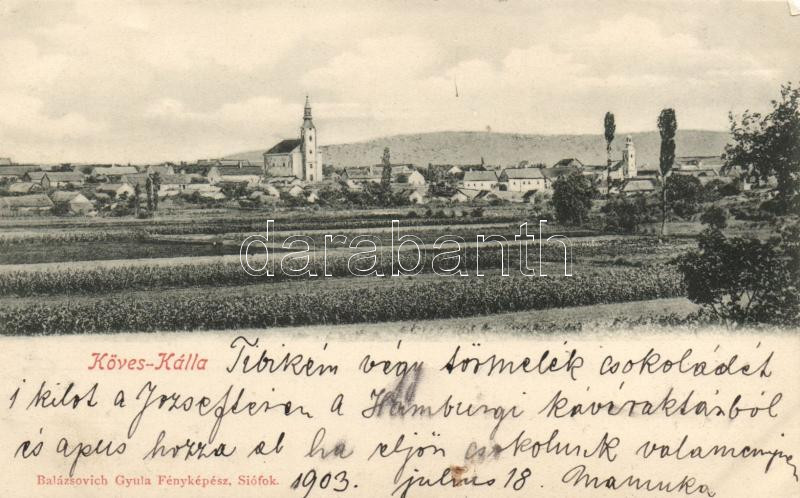 darabanth
Köves-Kálla Tibikém végy törmelék csokoládét
1 kilot a Jozseftéren a Hamburgi kávéraktárból
és apus hozza el ha eljön csokolunk valamennyien
Balázsovich Gyula Fényképész, Siófok. 1903. julius 18. Mamuka